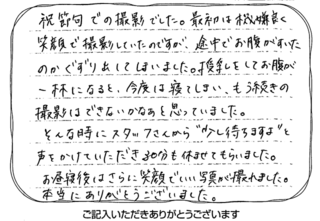 祝節句での撮影でした。最初は機嫌良く
笑顔で撮影していたのですが、途中でお腹がすいた
のかぐずり出してしまいました。授乳をしてお腹が
一杯になると、今度は寝てしまい、もう続きの
撮影はできないかなぁと思っていました。
そんな時にスタッフさんから"少し待ちますよ"と
声をかけていただき30分も休ませてもらいました。
お昼寝後はさらに笑顔でいい写真が撮れました。
本当にありがとうございました。
ご記入いただきありがとうございます